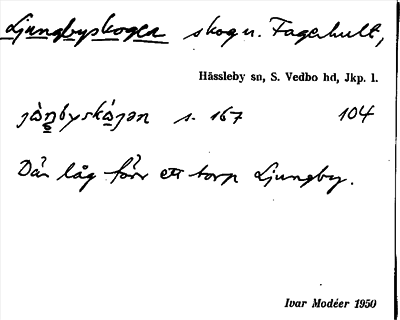 Ljungbyskogen skog u. Fagerhult,
Hässleby sn, S. Vedbo hd, Jkp. l.
s. 167 104
Där låg förr ett torp Ljungby.
Ivar Modéer 1950